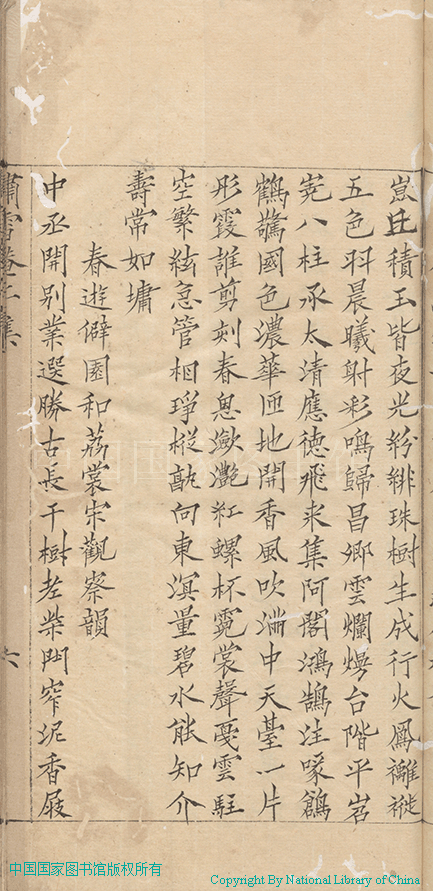 崑丘積玉皆夜光紛緋珠樹生成行火鳳襹褷
五色羽晨曦射彩鳴歸昌鄉雲爛熳台階平岧
嶤八柱承太清應德飛来集阿閣鴻鵠注喙鶬
鶴驚國色濃華匝地開香風吹滿中天臺一片
彤霞誰剪刻春息瀲灧紅螺杯霓裳聲戛雲駐
空繁絃急管相琤樅
酙向東溟量碧水能知介
壽常如墉
春遊僻園和荔裳宋觀察韻
中丞開别業選勝古長干樹老柴門窄泥香屐
六
中国国家图书馆版权所有
Copyright By National Library of China